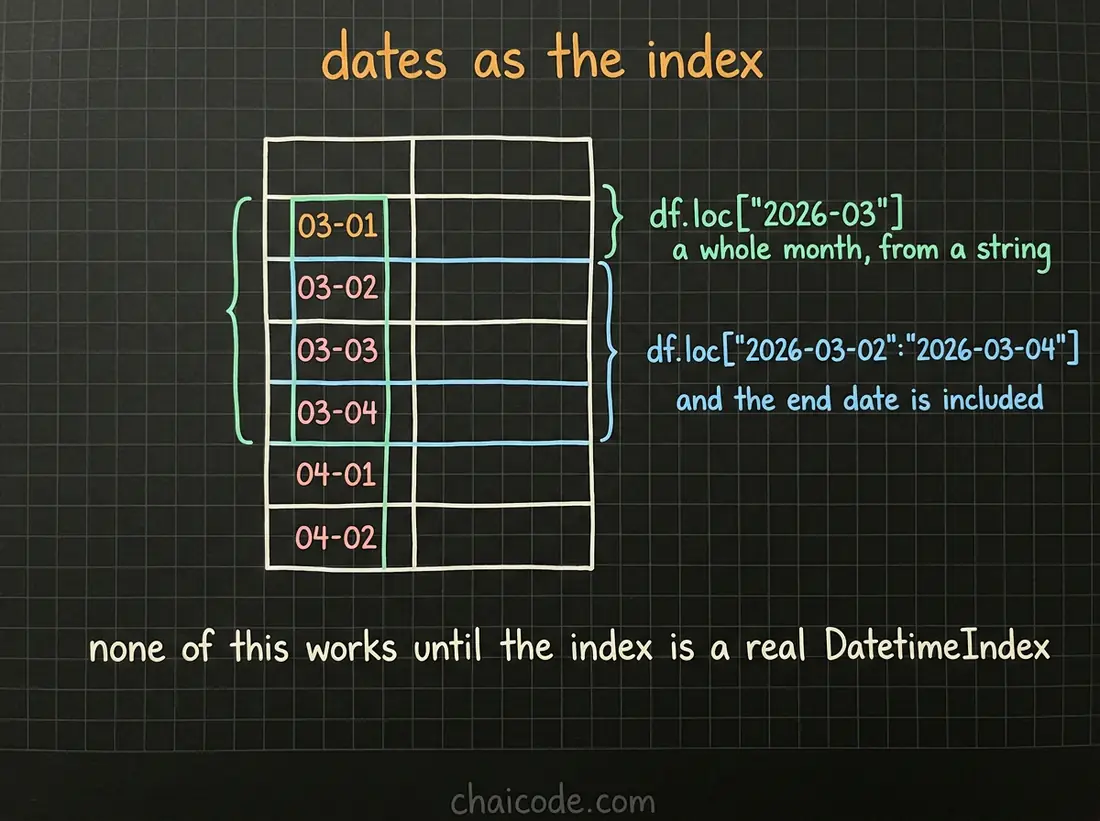 dates as the index
03-01
03-02
03-03
03-04
04-01
04-02
df.loc["2026-03"]
a whole month, from a string
df.loc["2026-03-02":"2026-03-04"]
and the end date is included
none of this works until the index is a real DatetimeIndex
chaicode.com